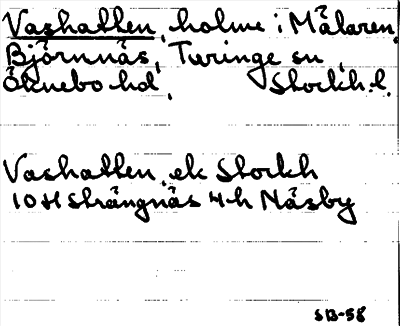 Vashallen, holme i Mälaren,
Björnnäs, Turinge sn,
Öknebo hd, Stockh. l.
Vashallen, ek Stockh
10H Strängnäs 4h Näsby
SB-58